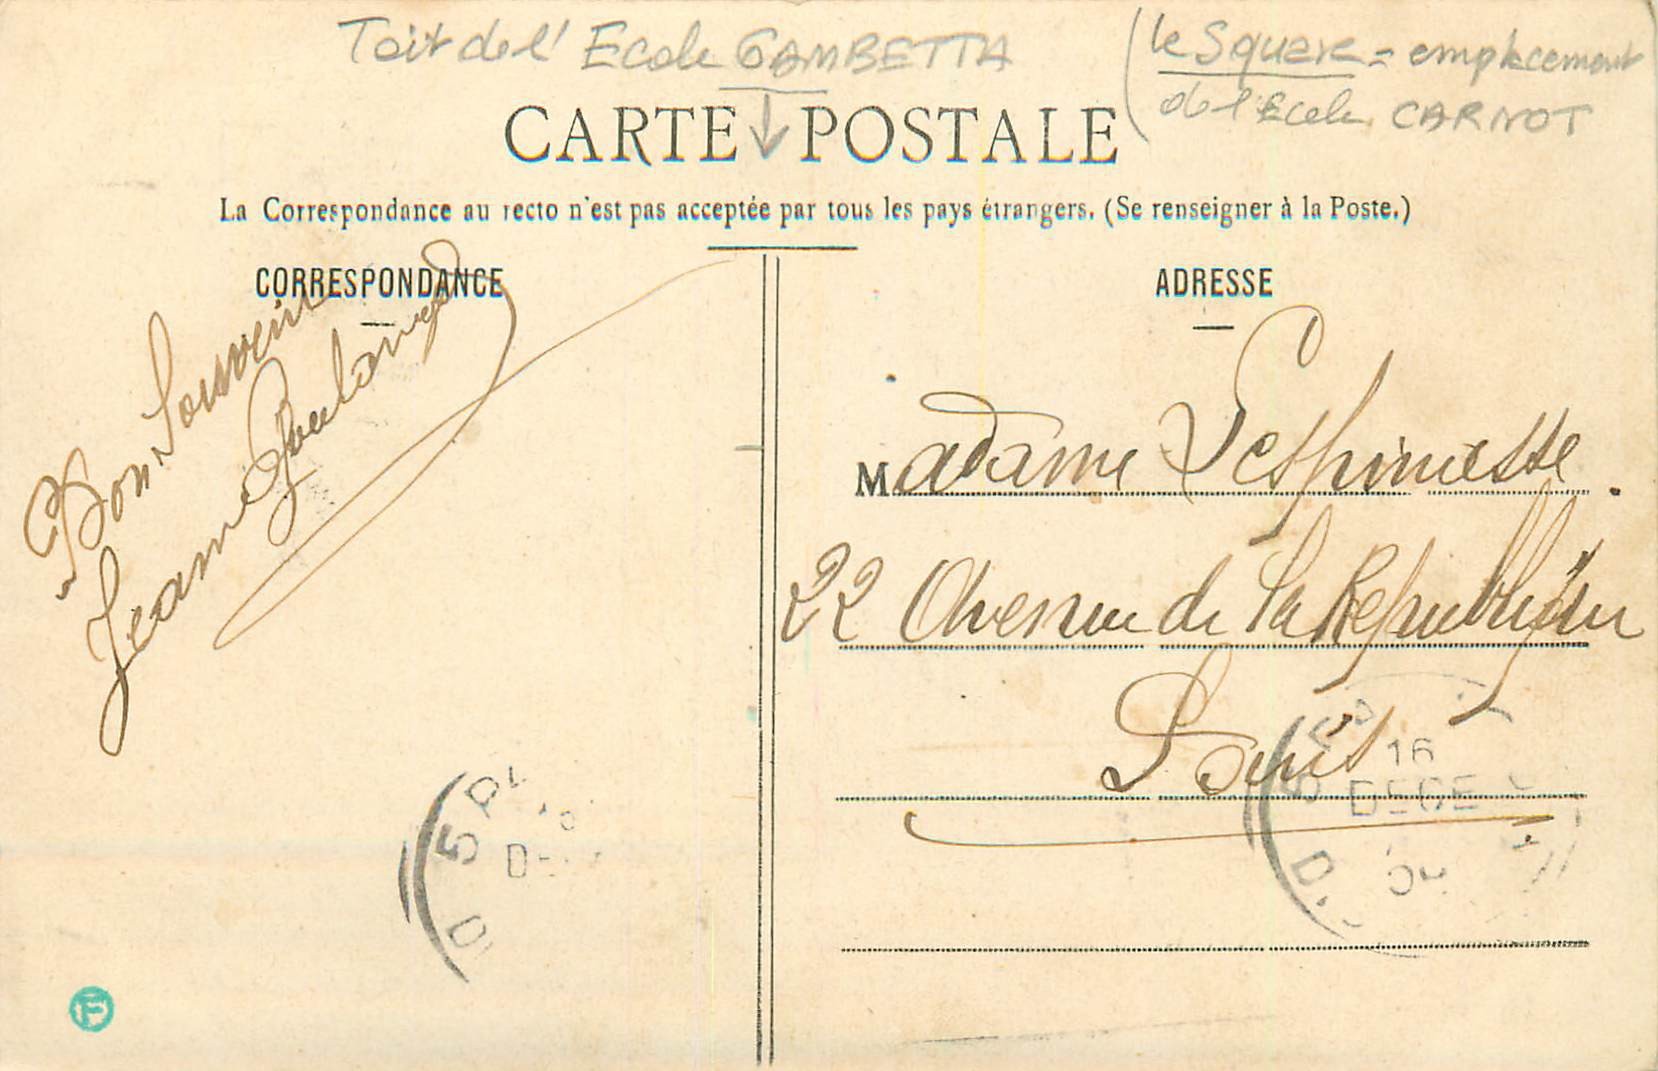 Toit de l' Ecole GAMBETTA
(le Square = emplacement
de l'Ecole CARNOT
CARTE POSTALE
La Correspondance au recto n'est pas acceptée par tous les pays étrangers. (Se renseigner à la Poste.)
CORRESPONDANCE
Bon Souvenir
Jeanne Boulanger
ADRESSE
Madame Lespinasse
22 Avenue de la République
Paris
16
DECE